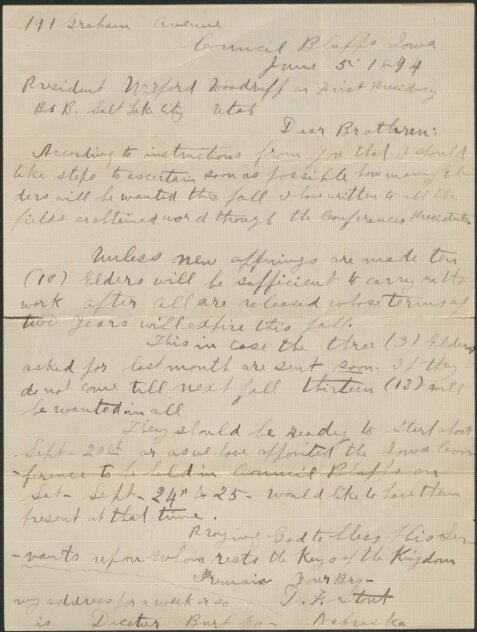 191 Graham Avenue
Council Bluffs Iowa.
June 5" 1894
President Wilford Woodruff or First Presidency
Box B. Salt Lake City Utah
Dear Brethren:
According to instructions from you that I should
take steps to ascertain soon as possible how many El-
ders will be wanted this fall I have written to all the
fields or obtained word through the Conference Presidents
Unless new offnings are made ten
(10) Elders will be sufficient to carry on the
work after all are released whose terms of
two years will expire this fall.
This in case the three (3) Elders
asked for last month are sent soon. If they
do not come till next fall thirteen (13) will
be wanted in all
They should be ready to start about
Sept- 20th or as we have appointed the Iowa Con-
ference to be held in Council Bluffs on
Sat- Sept- 24" & 25- would like to have them
present at that time.
Praying God to bless His Ser-
-vants upon whom rests the Keys of the Kingdom
I remain Your Bro-
my address for a week or so
is Decatur Burt Co- Nebraska